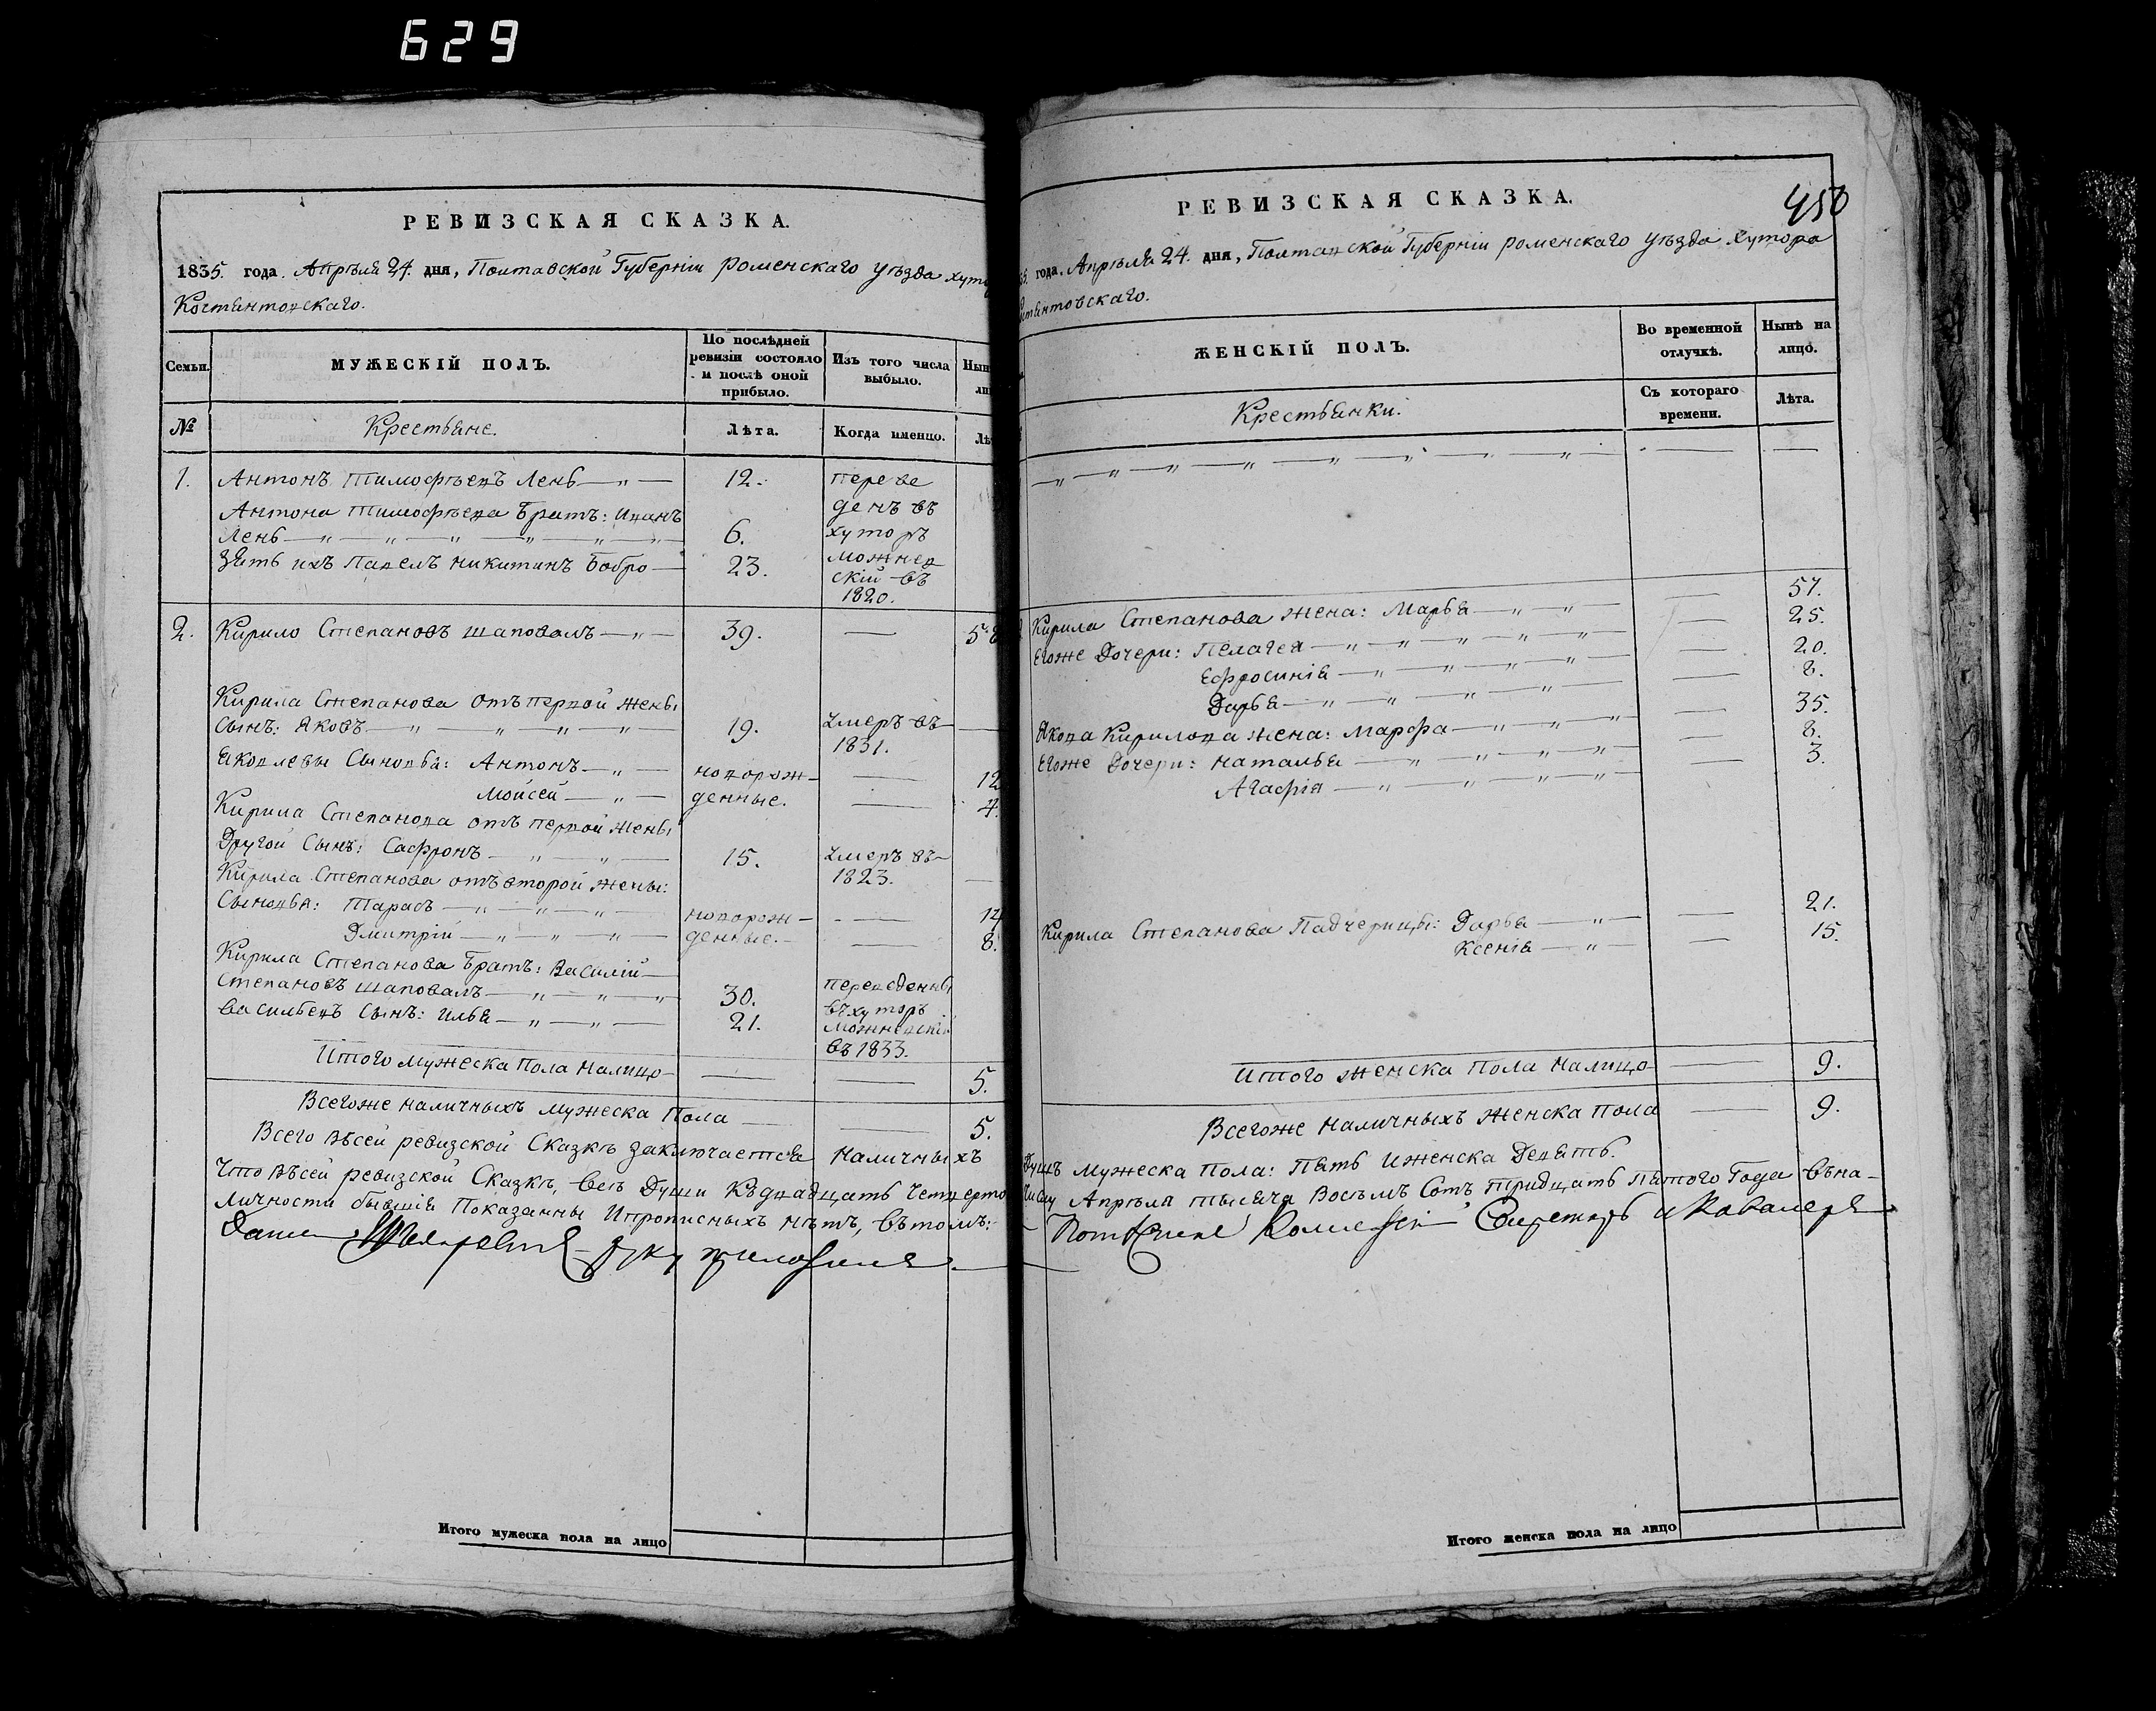 629
РЕВИЗСКАЯ СКАЗКА.
1835. года. Апрѣля 24. дня, Полтавской Губерніи роменскаго уѣзда хуто
Костантовскаго.
Семьи.
МУЖЕСКІЙ ПОЛЪ.
По послѣдней
ревизіи состояло
и послѣ оной
прибыло.
Изъ того числа
выбыло.
Нын
ли
№
Крестьяне.
Лѣта.
Когда именно.
Лѣ
1. Антонъ Тимофѣевъ Лень 12. переве
Антона Тимофѣева Братъ: Иванъ денъ въ
Лень 6. хуторъ
Зять ихъ Павелъ Никитинъ Бобро 23. Можнев
скій въ
1820.
2. Кирило Степановъ шаповалъ 39. — 58
Кирила Степанова отъ первой жены
Сынъ: Яковъ 19. Умеръ въ
1831.
Яковлевы Сыновья: Антонъ новорож- — 12
Мойсей денные. — 4.
Кирила Степанова отъ первой жены
Другой Сынъ: Сафронъ 15. Умеръ въ
1823.
Кирила Степанова отъ второй жены:
Сыновья: Тарасъ новорож- — 14
Дмитрій денные. — 8.
Кирила Степанова Братъ: Василій
Степановъ шаповалъ 30. переведены
Васильевъ Сынъ: Илья 21. въ хуторъ
Можневскій
въ 1833.
Итого мужеска пола налицо — — 5.
Всегоже наличныхъ мужеска пола — — 5.
Всего въсей ревизской Сказкѣ заключается наличныхъ
Что въсей ревизской Сказкѣ, всѣ Души Къдвадцать Четверто
личности бывшія Показанны Ипрописныхъ нѣтъ, вътомъ:
руку приложила.
Итого мужеска пола на лицо
РЕВИЗСКАЯ СКАЗКА.
450
35. года. Апрѣля 24. дня, Полтавской Губерніи роменскаго уѣзда Хутора
стантовскаго.
ЖЕНСКІЙ ПОЛЪ.
Во временной
отлучкѣ.
Нынѣ на
лицо.
Крестьянки.
Съ котораго
времени.
Лѣта.
Кирила Степанова жена: Марья — 57.
Егоже Дочери: Пелагея — 25.
Ефросинія — 20.
Дарья — 8.
Якова Кирилова жена: Марфа — 35.
Егоже Дочери: Наталья — 8.
Агафія — 3.
Кирила Степанова Падчерицы: Дарья — 21.
Ксенія — 15.
Итого женска пола налицо — 9.
Всегоже наличныхъ женска пола — 9.
Душъ мужеска пола: Пять Иженска Девять.
Числу Апрѣля тысяча Восемъ Сотъ тридцать пятого Года Въна-
Секретарь и Кавалеръ
Итого женска пола на лицо